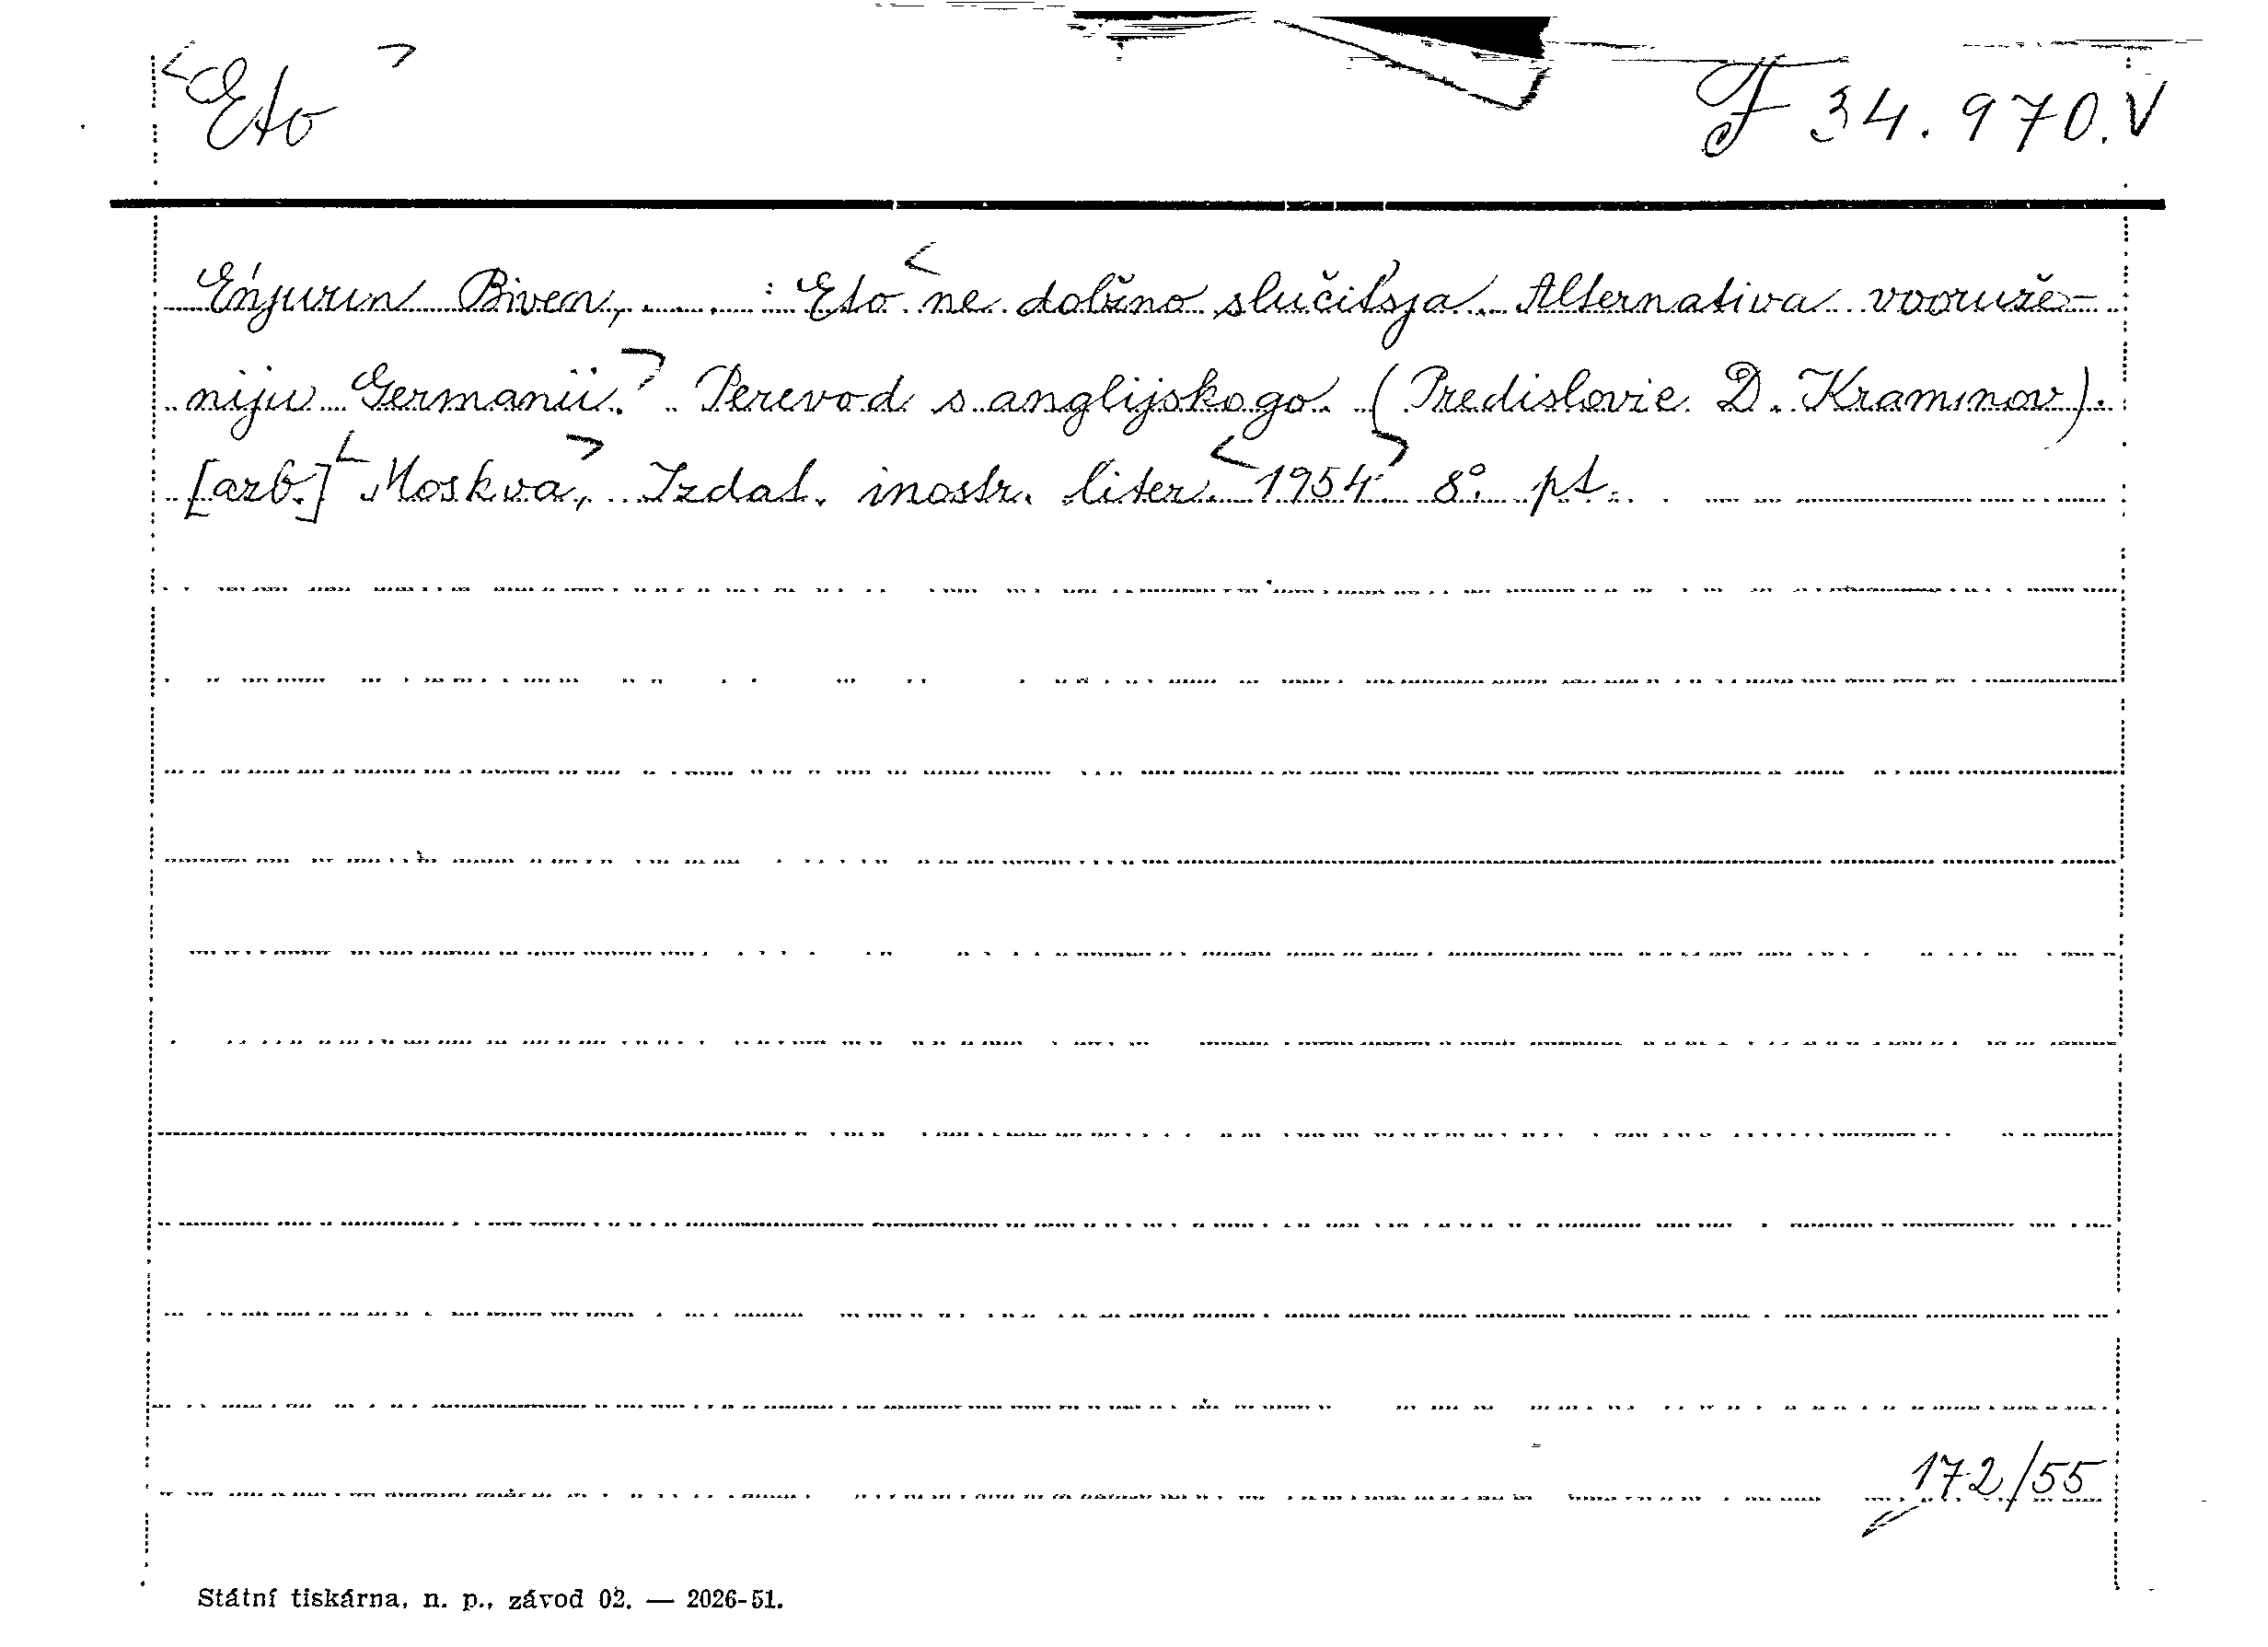 <Eto>
F 34.970.V
Enjurin Biven, . . . : Eto <ne dolžno slučiťsja. Alternativa vooruže-
niju Germanii.> Perevod s anglijskogo. (Predislovie D. Kraminov).
[azb.] <Moskva>, Izdat. inostr. liter. <1954> 8°. pt.
172/55
Státní tiskárna, n. p., závod 02. — 2026-51.